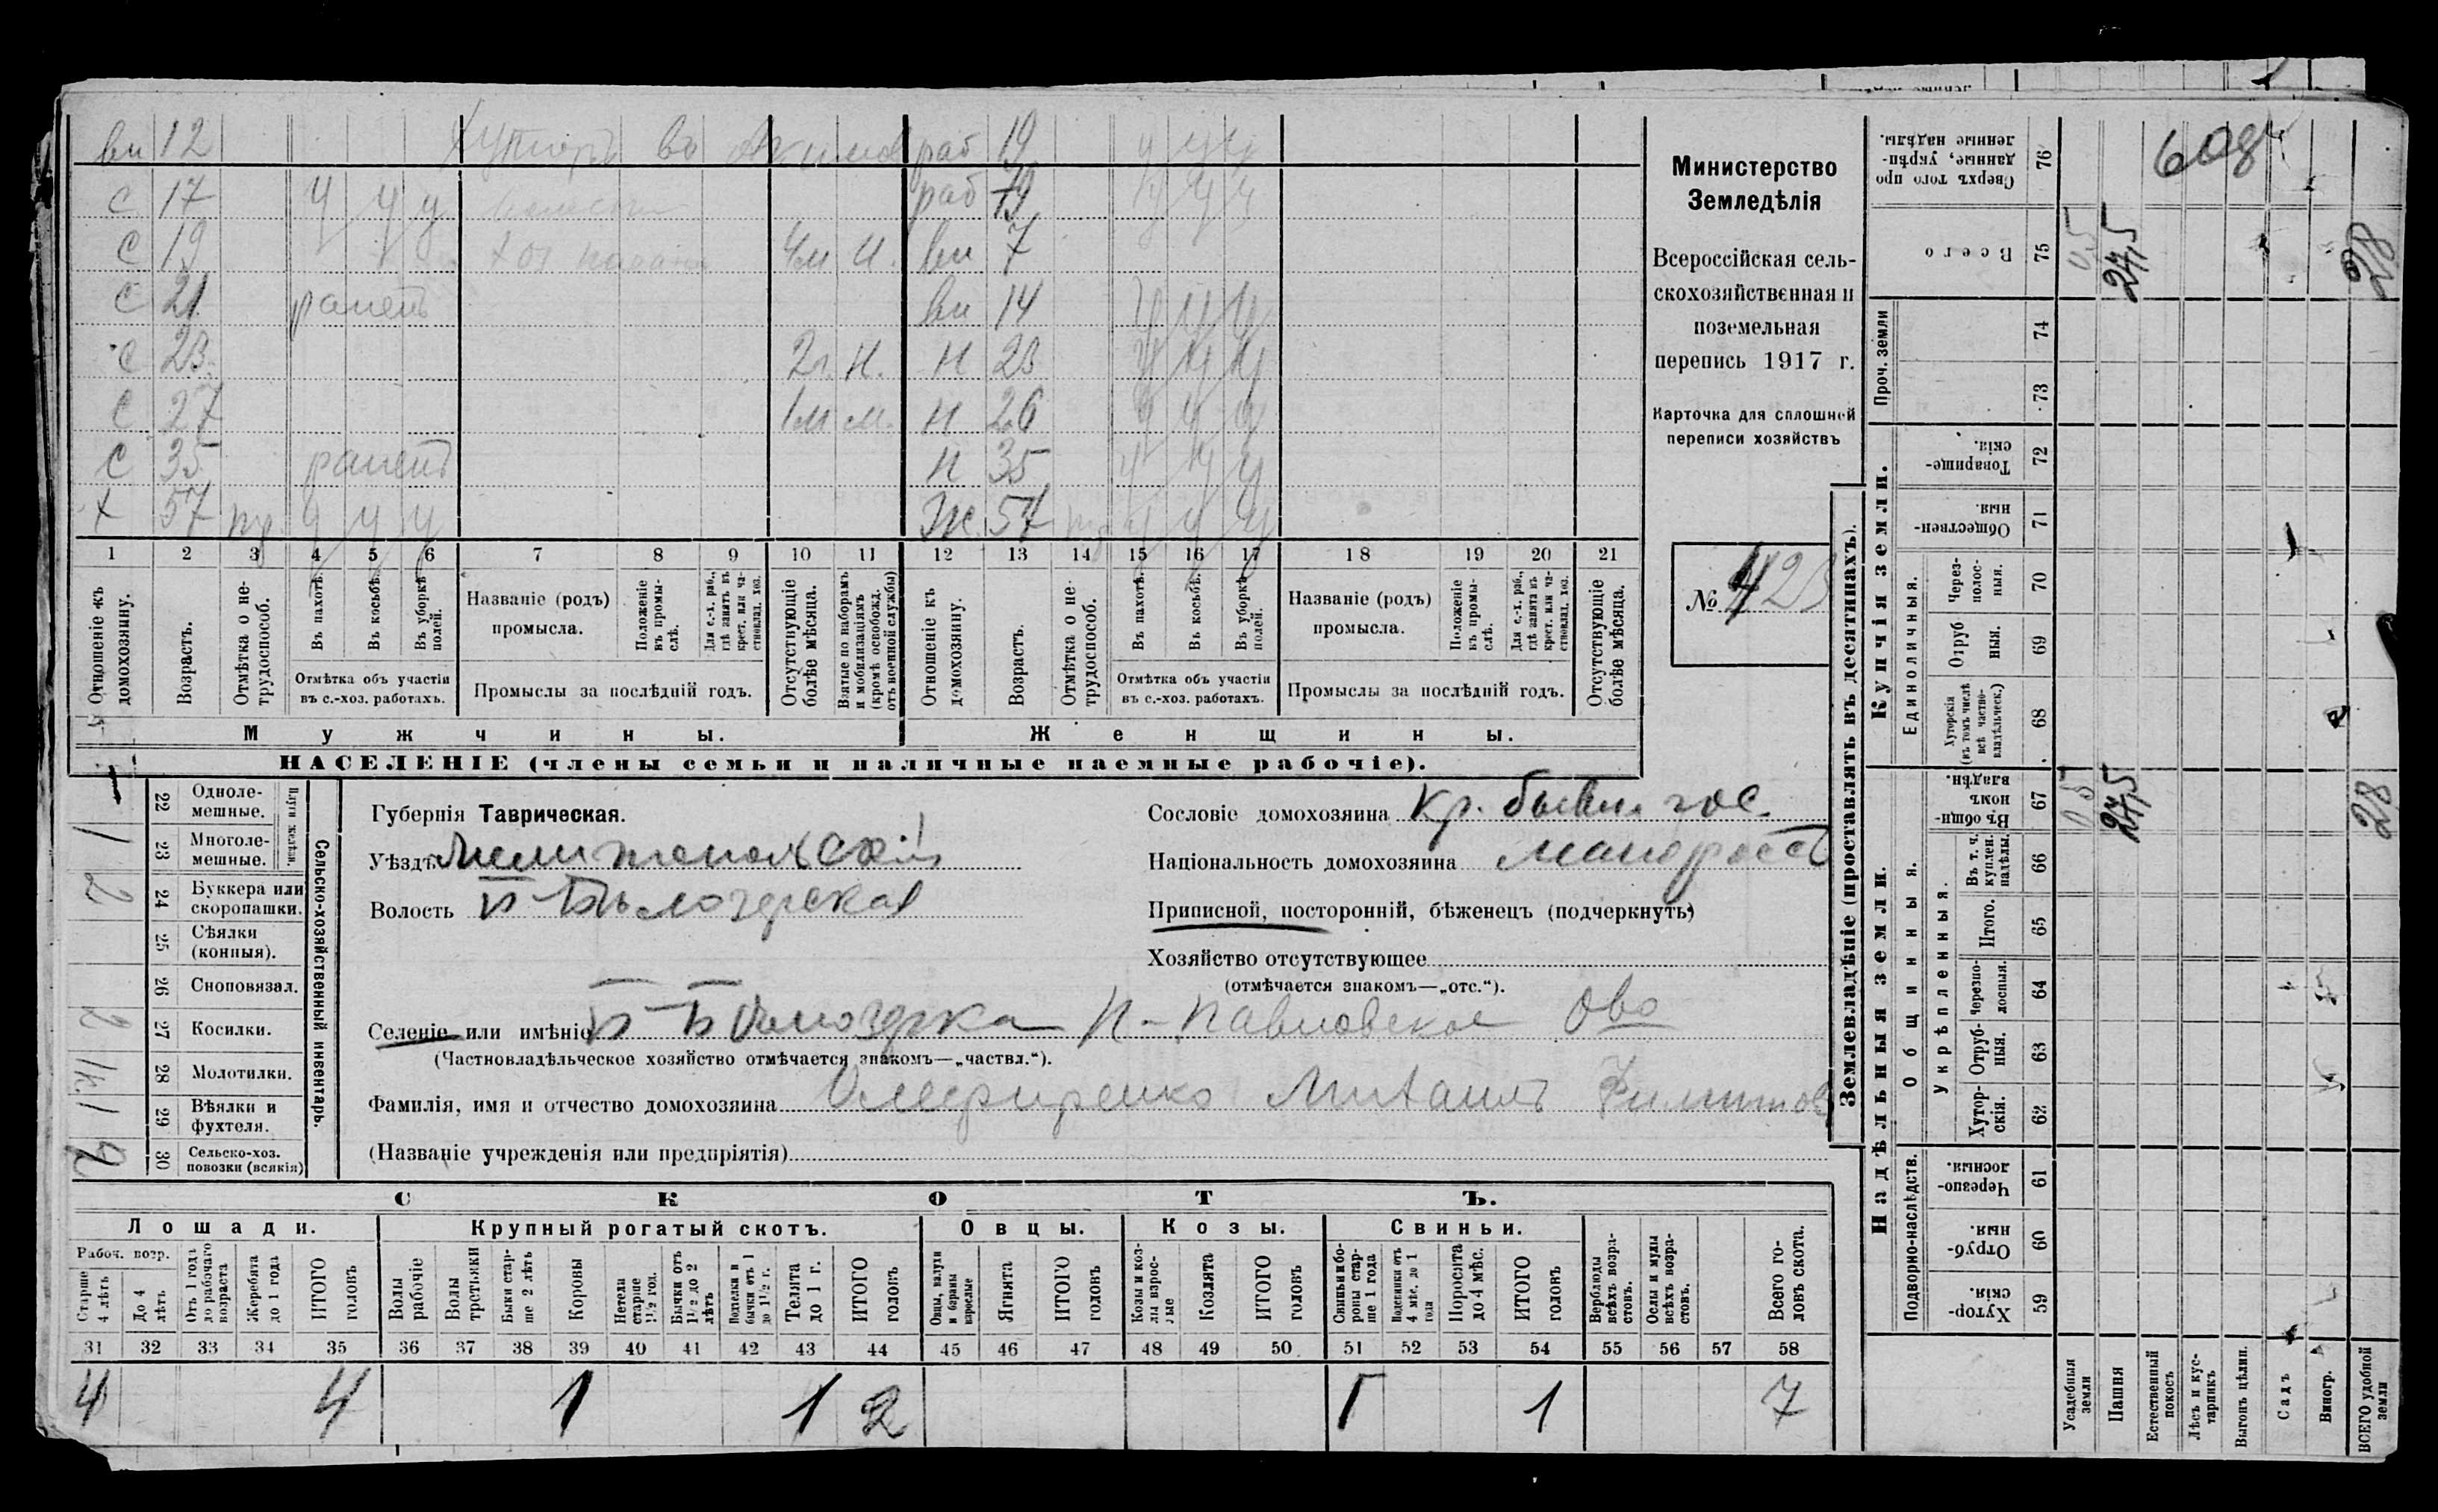 вн 12 Хуторъ во раб 19 у у у
с 17 у у у раб 19 у у у
с 19 4м н. вн 7
с 21 раненъ вн 14 у у у
с 23 2г. н. н 23 у у у
с 27 1м м. н 26 у у у
с 35 раненъ н 35 у у у
х 57 у у у Ж. 57 у у у
1 2 3 4 5 6 7 8 9 10 11 12 13 14 15 16 17 18 19 20 21
Отношеніе къ домохозяину.
Возрастъ.
Отмѣтка о не-трудоспособ.
Въ пахотѣ.
Въ косьбѣ.
Въ уборкѣ полей.
Отмѣтка объ участіи въ с.-хоз. работахъ.
Названіе (родъ) промысла.
Положеніе въ промы-слѣ.
Для с.-х. раб., гдѣ занятъ въ крест. или ча-стновлад. хоз.
Промыслы за послѣдній годъ.
Отсутствующіе болѣе мѣсяца.
Взятые по наборамъ и мобилизаціямъ (кромѣ освобожд. отъ военной службы)
Отношеніе къ домохозяину.
Возрастъ.
Отмѣтка о не-трудоспособ.
Въ пахотѣ.
Въ косьбѣ.
Въ уборкѣ полей.
Отмѣтка объ участіи въ с.-хоз. работахъ.
Названіе (родъ) промысла.
Положеніе въ промы-слѣ.
Для с.-х. раб., гдѣ занята въ крест. или ча-стновлад. хоз.
Промыслы за послѣдній годъ.
Отсутствующіе болѣе мѣсяца.
Мужчины. Женщины.
НАСЕЛЕНІЕ (члены семьи и наличные наемные рабочіе).
Министерство
Земледѣлія
Всероссійская сель-
скохозяйственная и
поземельная
перепись 1917 г.
Карточка для сплошной
переписи хозяйствъ
№ 423
Сельско-хозяйственный инвентарь.
Плуги желѣзн.
22 Одноле-мешные. 1
23 Многоле-мешные. 1
24 Буккера или скоропашки. 2
25 Сѣялки (конныя).
26 Сноповязал.
27 Косилки. 2
28 Молотилки. 1к.
29 Вѣялки и фухтеля. 1
30 Сельско-хоз. повозки (всякія) 2
Губернія Таврическая.
Уѣздъ Мелитопольскій
Волость П-Бѣлозерская
Селеніе или имѣніе П-Бѣлозерка П-Павловское Ово
(Частновладѣльческое хозяйство отмѣчается знакомъ—„частвл.“).
Фамилія, имя и отчество домохозяина Олефиренко Михаилъ Филиппов
(Названіе учрежденія или предпріятія)
Сословіе домохозяина кр. бывш гос.
Національность домохозяина малоросс
Приписной, посторонній, бѣженецъ (подчеркнуть)
Хозяйство отсутствующее
(отмѣчается знакомъ—„отс.“).
СКОТЪ.
Лошади. Крупный рогатый скотъ. Овцы. Козы. Свиньи.
Рабоч. возр.
Старше 4 лѣтъ
До 4 лѣтъ
Отъ 1 года до рабочаго возраста
Жеребята до 1 года
ИТОГО головъ
Волы рабочіе
Волы третьяки
Быки стар-ше 2 лѣтъ
Коровы
Нетели старше 1½ год.
Бычки отъ 1½ до 2 лѣтъ
Подтелки и бычки отъ 1 до 1½ г.
Телята до 1 г.
ИТОГО головъ
Овцы, валухи и бараны взрослые
Ягнята
ИТОГО головъ
Козы и коз-лы взрос-лые
Козлята
ИТОГО головъ
Свиньи и бо-ровы стар-ше 1 года
Подсвинки отъ 4 мѣс. до 1 года
Поросята до 4 мѣс.
ИТОГО головъ
Верблюды всѣхъ возра-стовъ.
Ослы и мулы всѣхъ возра-стовъ.
Всего го-ловъ скота.
31 32 33 34 35 36 37 38 39 40 41 42 43 44 45 46 47 48 49 50 51 52 53 54 55 56 57 58
4 4 1 1 2 1 1 7
Землевладѣніе (проставлять въ десятинахъ).
Надѣльныя земли. Купчія земли. Проч. земли
Подворно-наслѣдств.
Общинныя.
Укрѣпленныя.
Единоличныя.
59 Хутор-скія.
60 Отруб-ныя.
61 Черезпо-лосныя.
62 Хутор-скія.
63 Отруб-ныя.
64 Черезпо-лосныя.
65 Итого.
66 Въ т. ч. куплен. надѣлы.
67 Въ общин-номъ владѣн. 0,5 27,5 28
68 Хуторскія (въ томъ числѣ всѣ частно-владѣльческ.)
69 Отруб ныя.
70 Через-полос-ныя.
71 Обществен-ныя.
72 Товарище-скія.
73
74
75 Всего 0,5 27,5 28
76 Сверхъ того про данные, укрѣп-ленные надѣлы.
Усадебныя земли
Пашня
Естественный покосъ
Лѣсъ и кус-тарникъ
Выгонъ цѣлин.
Садъ
Виногр.
ВСЕГО удобной земли